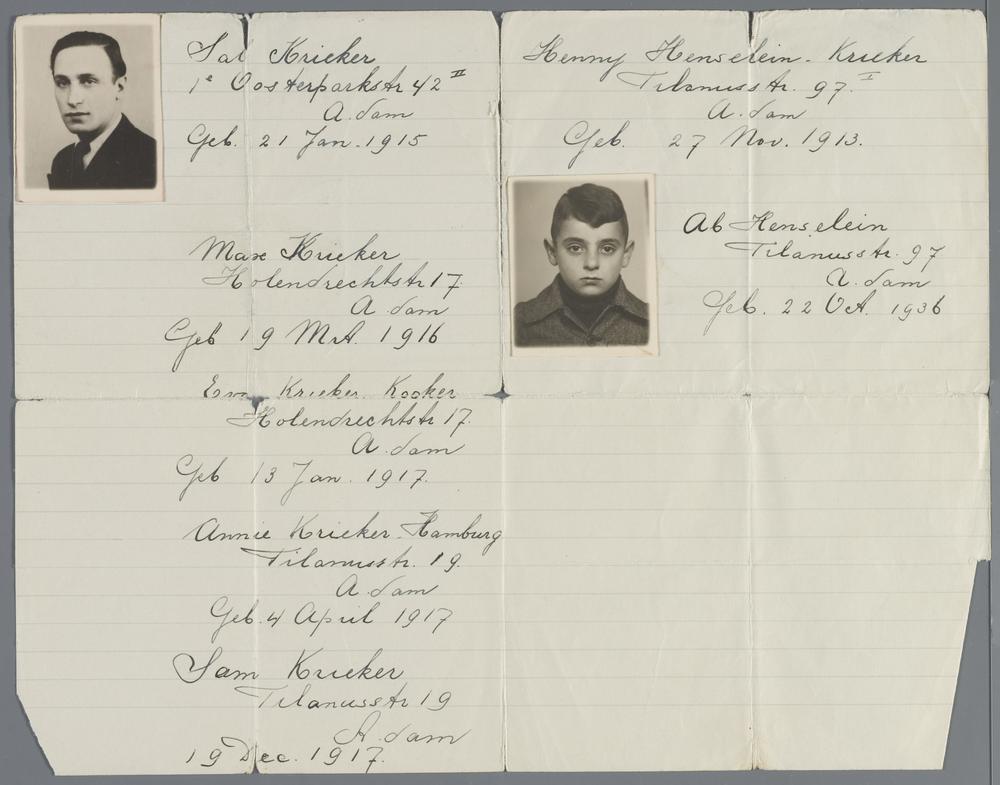 Sal Krieker
1e Oosterparkstr 42 II
A.dam
Geb. 21 Jan. 1915
Max Krieker
Holendrechtstr 17.
A.dam
Geb 19 Mrt. 1916
Eva Krieker. Kooker
Holendrechtstr 17.
A.dam
Geb 13 Jan. 1917.
Annie Krieker. Hamburg
Tilanusstr. 19.
A.dam
Geb. 4 April 1917
Sam Krieker
Tilanusstr 19
A.dam
19 Dec. 1917.
Henny Henselein. Krieker
Tilanusstr. 97. I
A.dam
Geb. 27 Nov. 1913.
Ab Henselein
Tilanusstr. 97
A.dam
Geb. 22 Oct. 1936